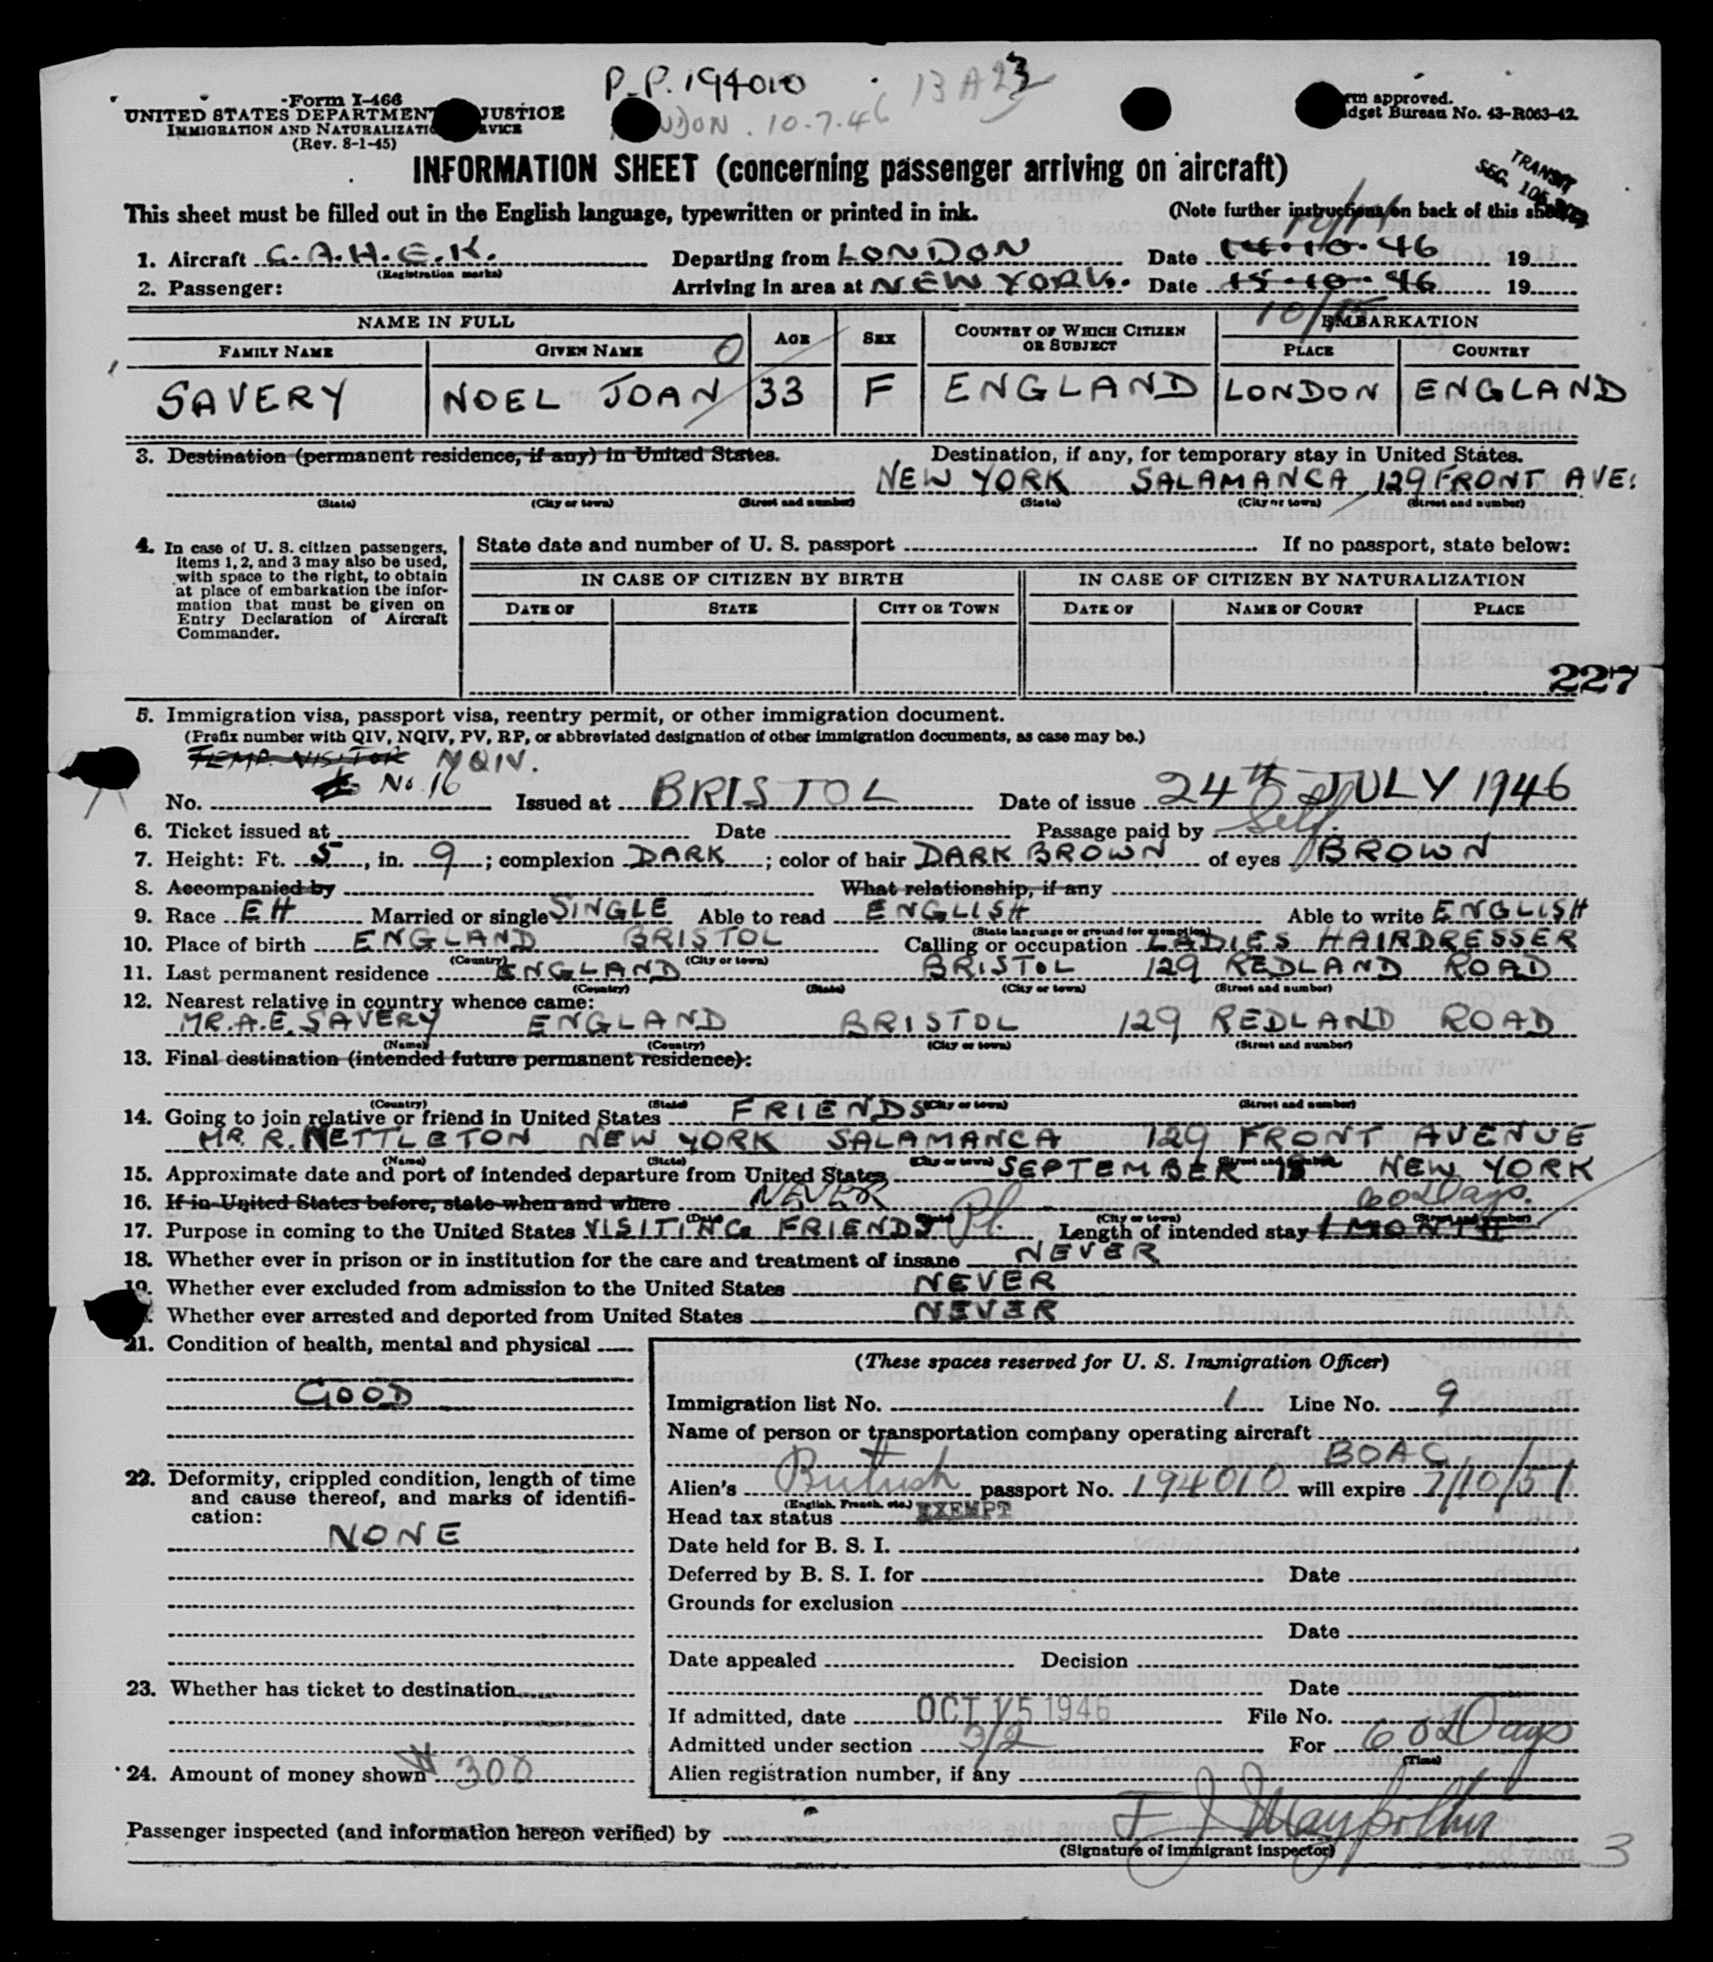 P.P. 194010 13 A 23
Form I-466
UNITED STATES DEPARTMENT JUSTICE
IMMIGRATION AND NATURALIZATI
(Rev. 8-1-45)
NDON. 10.7.46
approved.
dget Bureau No. 43-R063-42.
INFORMATION SHEET (concerning passenger arriving on aircraft)
TRANSIT
SEC. 105
This sheet must be filled out in the English language, typewritten or printed in ink. (Note further instructions on back of this
10/14
1. Aircraft G.A.H.E.K. Departing from LONDON Date 14.10.46 19
(Registration marks)
2. Passenger: Arriving in area at NEW YORK. Date 15.10.46 19
10/15
NAME IN FULL AGE SEX COUNTRY OF WHICH CITIZEN OR SUBJECT EMBARKATION
FAMILY NAME GIVEN NAME PLACE COUNTRY
SAVERY NOEL JOAN 33 F ENGLAND LONDON ENGLAND
3. Destination (permanent residence, if any) in United States. Destination, if any, for temporary stay in United States.
NEW YORK SALAMANCA 129 FRONT AVE:
(State) (City or town) (Street and number) (State) (City or town) (Street and number)
4. In case of U. S. citizen passengers, items 1, 2, and 3 may also be used, with space to the right, to obtain at place of embarkation the information that must be given on Entry Declaration of Aircraft Commander.
State date and number of U. S. passport If no passport, state below:
IN CASE OF CITIZEN BY BIRTH IN CASE OF CITIZEN BY NATURALIZATION
DATE OF STATE CITY OR TOWN DATE OF NAME OF COURT PLACE
227
5. Immigration visa, passport visa, reentry permit, or other immigration document.
(Prefix number with QIV, NQIV, PV, RP, or abbreviated designation of other immigration documents, as case may be.)
TEMP. VISITOR NQIV.
No. No. 16 Issued at BRISTOL Date of issue 24th JULY 1946
6. Ticket issued at Date Passage paid by Self
7. Height: Ft. 5, in. 9; complexion DARK; color of hair DARK BROWN of eyes BROWN
8. Accompanied by What relationship, if any
9. Race EH Married or single SINGLE Able to read ENGLISH Able to write ENGLISH
(State language or ground for exemption)
10. Place of birth ENGLAND BRISTOL Calling or occupation LADIES HAIRDRESSER
(Country) (City or town)
11. Last permanent residence ENGLAND BRISTOL 129 REDLAND ROAD
(Country) (State) (City or town) (Street and number)
12. Nearest relative in country whence came:
MR. A.E. SAVERY ENGLAND BRISTOL 129 REDLAND ROAD
(Name) (Country) (City or town) (Street and number)
13. Final destination (intended future permanent residence):
(Country) (State) (City or town) (Street and number)
14. Going to join relative or friend in United States FRIENDS
MR. R. NETTLETON NEW YORK SALAMANCA 129 FRONT AVENUE
(Name) (State) (City or town) (Street and number)
15. Approximate date and port of intended departure from United States SEPTEMBER NEW YORK
16. If in United States before, state when and where NEVER
60 Days.
(Date) (State) (City or town) (Street and number)
17. Purpose in coming to the United States VISITING FRIENDS Pl. Length of intended stay 1 MONTH
18. Whether ever in prison or in institution for the care and treatment of insane NEVER
19. Whether ever excluded from admission to the United States NEVER
Whether ever arrested and deported from United States NEVER
21. Condition of health, mental and physical
GOOD
22. Deformity, crippled condition, length of time and cause thereof, and marks of identification:
NONE
23. Whether has ticket to destination
24. Amount of money shown $ 300
(These spaces reserved for U. S. Immigration Officer)
Immigration list No. 1 Line No. 9
Name of person or transportation company operating aircraft
BOAC
Alien's British passport No. 194010 will expire 7/10/51
(English, French, etc.)
Head tax status EXEMPT
Date held for B. S. I.
Deferred by B. S. I. for Date
Grounds for exclusion
Date
Date appealed Decision
Date
If admitted, date OCT 15 1946 File No.
Admitted under section 3/2 For 60 Days
(Time)
Alien registration number, if any
Passenger inspected (and information hereon verified) by
(Signature of immigrant inspector)
3